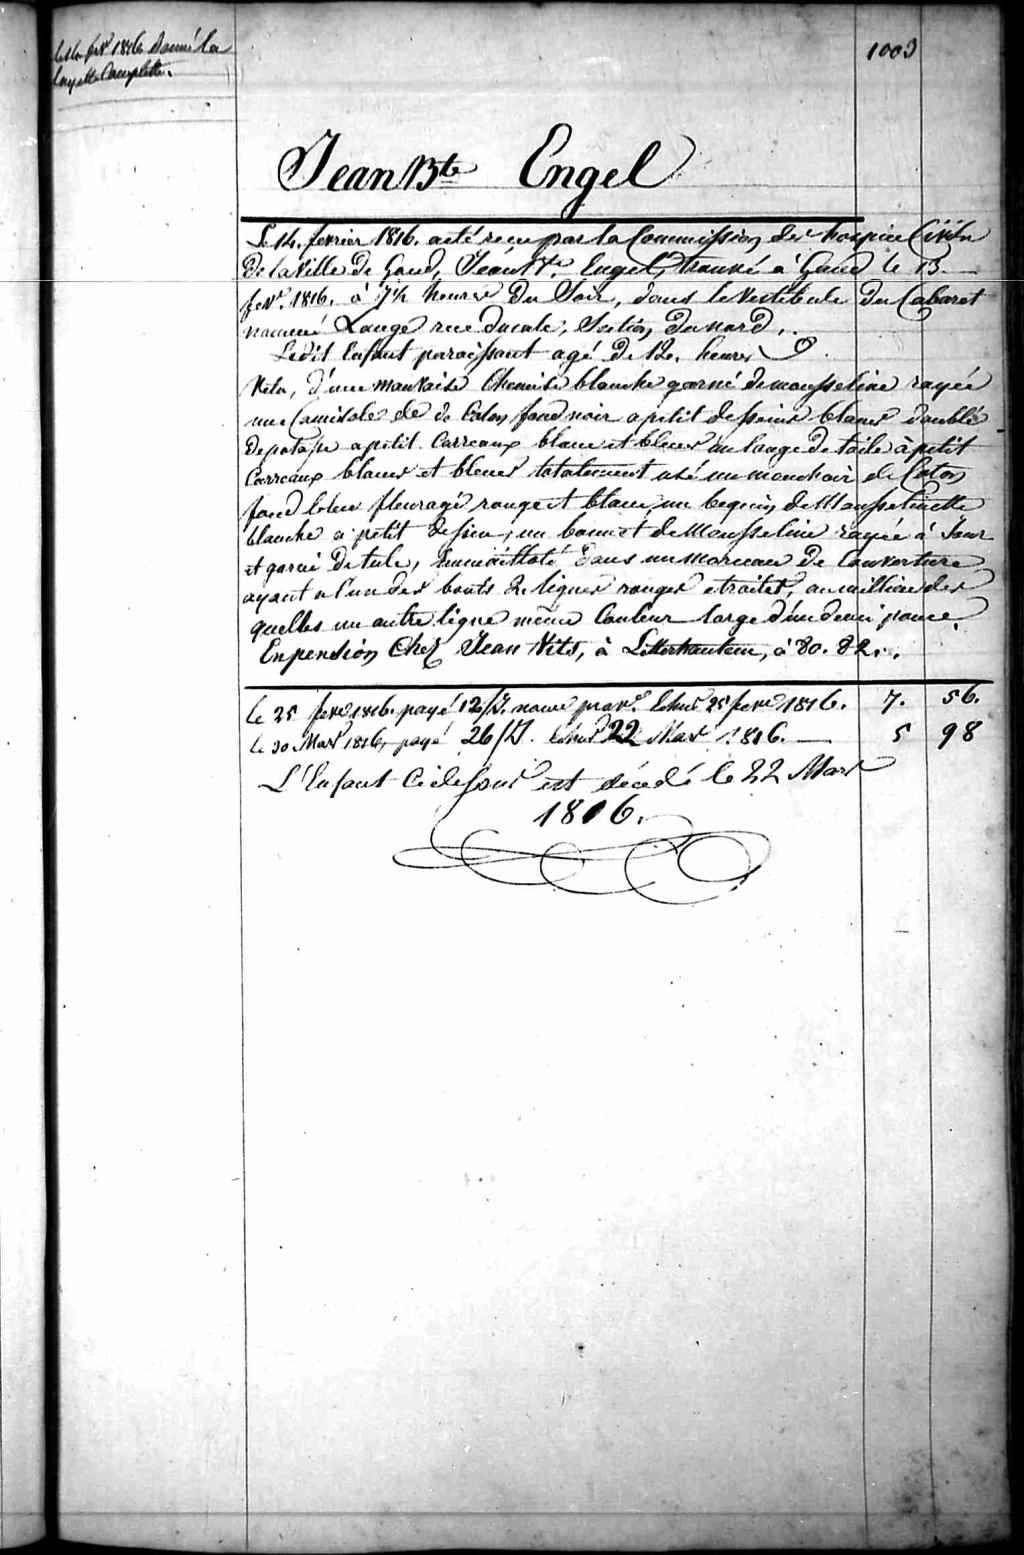 le 14 fevr 1816 donné la
layette Complette.
1003
Jean Bte Engel
Le 14. fevrier 1816. a été recu par la Commission des hospices Civils
de la Ville de Gand, Jean Bte. Engel, trouvé à Gand le 13.
fevr. 1816. à 7½ heures du Soir, dans le Vestibule du Cabaret
nommé Lange rue ducale, Section du nord.
Ledit Enfant paroissant agé de 12. heures
Vetu, d'une mauvaise Chemise blanche garné de mousseline rayée
une Camisole de de Coton fond noir a petit desseins blancs doublé
de a petit Carreaux blanc et bleus un lange de toile à petit
Carreaux blancs et bleues totalement usé un mouchoir de Coton
fond bleu fleuragé rouge et blanc, un beguin de Mousselinette
blanche a petit dessein, un bonnet de Mousseline rayée à Jour
et garni de tule, Emmaillotté dans un morceau de Couverture
ayant a l'un des bouts 2 lignes rouges etroites, au millieu des
quelles un autre ligne même Couleur large d'un demi pouce.
En pension Chez Jean Nits, à Letterhautem, à 80. 82.
le 25 fevr 1816. payé 12/ nour prov. Echus 25 fevr 1816. 7. 56.
le 30 Mars 1816, payé 26/ Echus 22 Mars 1816. 5 98
L'Enfant Cidessus est décédé le 22 Mars
1816.